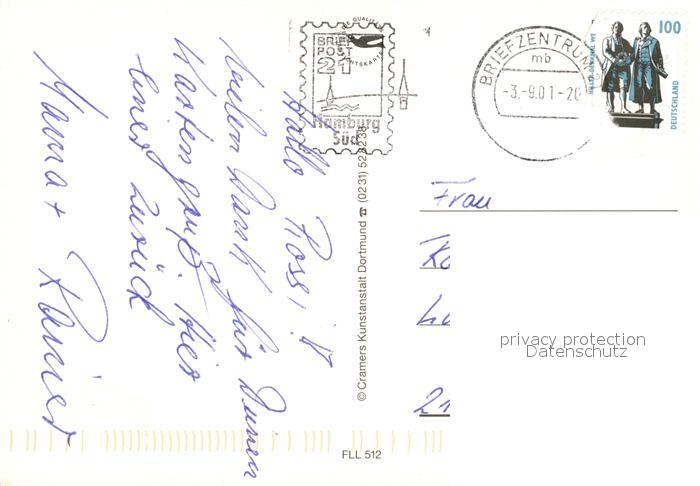 Hallo Rossi!
vielen Dank für Deinen
Kartengruß. Hier
einer zurück
Mama + Rainer
BRIEF
POST
21
Hamburg
Süd
BRIEFZENTRUM
mb
-3.-9.01-20
100
DEUTSCHLAND
© Cramers Kunstanstalt Dortmund ☎ (0231) 528238
Frau
21
privacy protection
Datenschutz
FLL 512